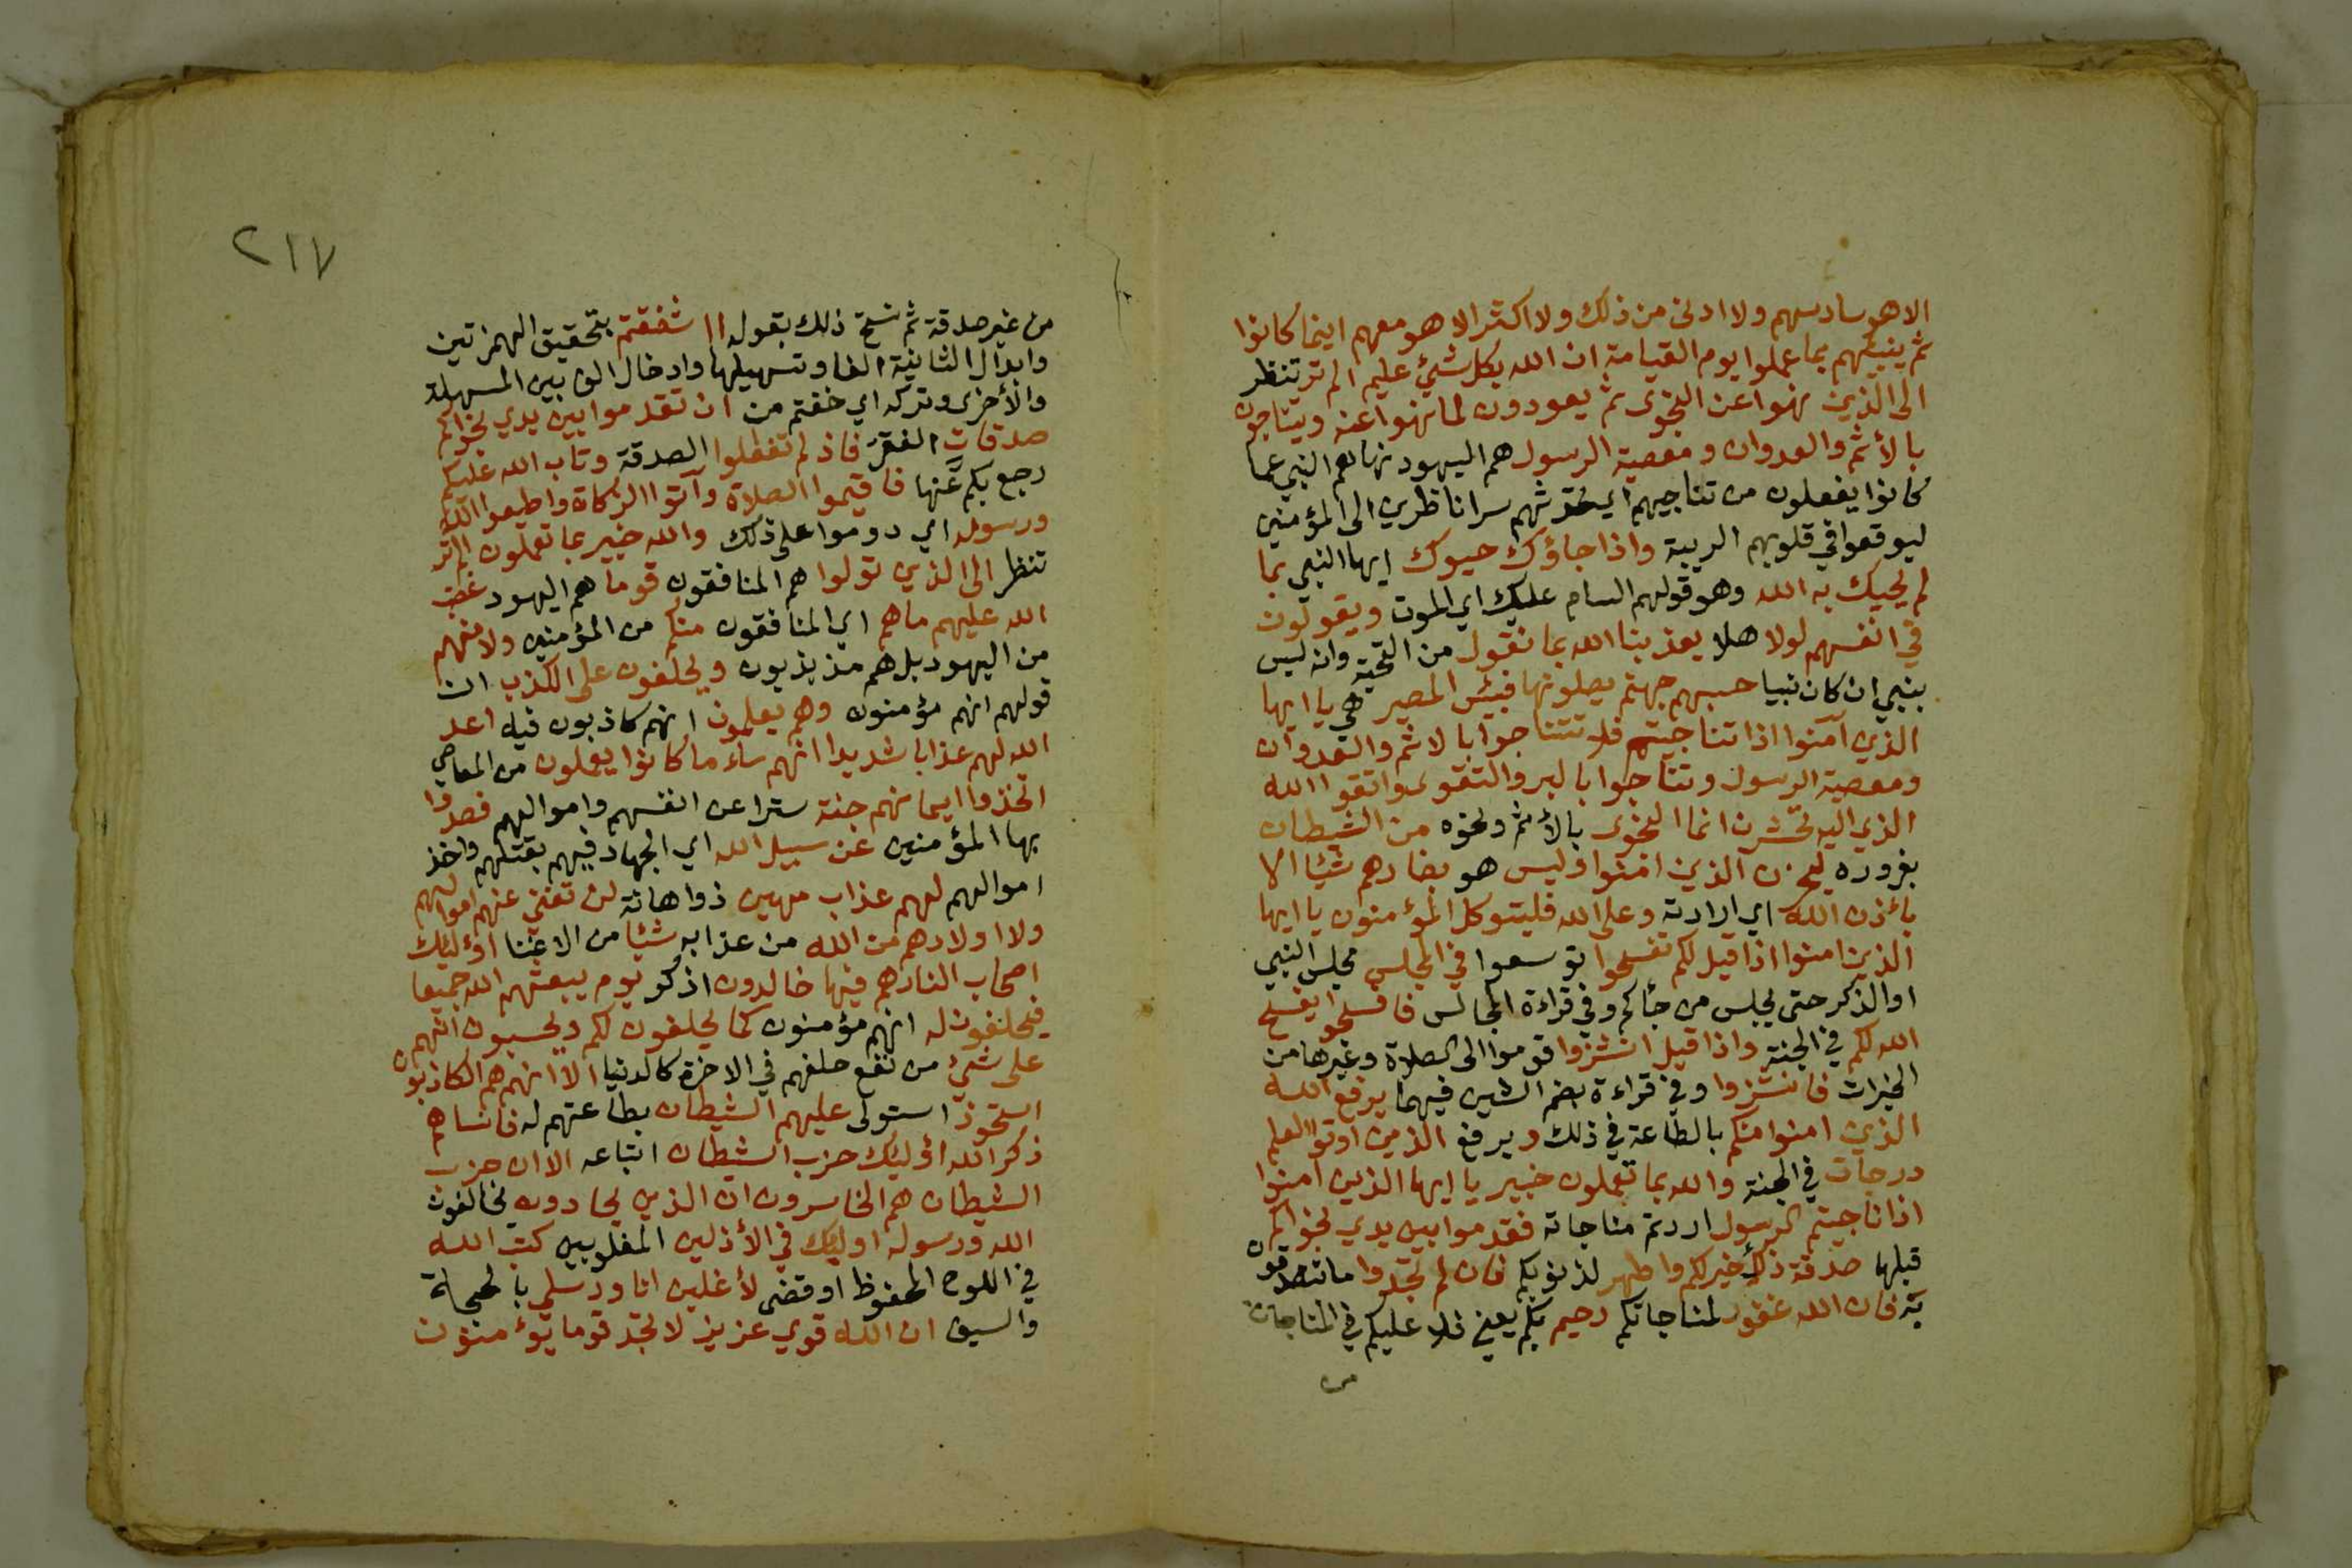 الا هو سادسهم ولا ادنى من ذلك ولا اكثر الا هو معهم اينما كانوا
ثم ينبئهم بما عملوا يوم القيامة ان الله بكل شيئ عليم الم تر تنظر
الى الذين نهوا عن النجوى ثم يعودون لما نهوا عنه ويتناجون
بالأثم والعدوان ومعصية الرسول هم اليهود نهاهم النبي عما
كانوا يفعلون من تناجيهم اي تحدثهم سرا ناظرين الى المؤمنين
ليوقعوا في قلوبهم الريبة واذا جاؤك حيوك ايها النبي بما
لم يحيك به الله وهو قولهم السام عليك اي الموت ويقولون
في انفسهم لولا هلا يعذبنا الله بما نقول من التحية وانه ليس
بنبي ان كان نبيا حسبهم جهنم يصلونها فبئس المصير هي يا ايها
الذين آمنوا اذا تناجيتم فلا تتناجوا بالاثم والعدوان
ومعصية الرسول وتناجوا بالبر والتقوى واتقوا الله
الذي اليه تحشرن انما النجوى بالأثم ونحوه من الشيطان
بغروره ليحزن الذين امنوا وليس هو بضارهم شيئا الا
بأذن الله اي ارادته وعلى الله فليتوكل المؤمنون يا ايها
الذين امنوا اذا قيل لكم تفسحوا توسعوا في المجلس مجلس النبي
او الذكر حتى يجلس من جأكم وفي قراءة المجالس فافسحوا يفسح
الله لكم في الجنة واذا قيل انشزوا قوموا الى الصلاة وغيرها من
الخيرات فانشزوا وفي قراءة بضم الشين فيهما يرفع الله
الذين امنوا منكم بالطاعة في ذلك ويرفع الذين اوتوا العلم
درجات في الجنة والله بما تعملون خبير يا ايها الذين امنوا
اذا ناجيتم الرسول اردتم مناجاته فقدموا بين يدي نجواكم
قبلها صدقة ذلك خير لكم واطهر لذنوبكم فان لم تجدوا ما تتصدقون
به فان الله غفور لمناجاتكم رحيم بكم يعني فلا عليكم في المناجات
من
٢١٧
من غير صدقة ثم نسخ ذلك بقوله ااشفقتم بتحقيق الهمزتين
وابدال الثانية الفا وتسهيلها وادخال الف بين المسهلة
والأخرى وتركه اي خفتم من ان تقدموا بين يدي نجواكم
صدقات الفقر فاذ لم تفعلوا الصدقة وتاب الله عليكم
رجع بكم عنها فاقيموا الصلاة وآتوا الزكاة واطيعوا الله
ورسوله اي دوموا على ذلك والله خبير بما تعملون الم تر
تنظر الى الذين تولوا هم المنافقون قوما هم اليهود غضب
الله عليهم ما هم اي المنافقون منكم من المؤمنين ولا منهم
من اليهود بل هم مذبذبون ويحلفون على الكذب ان
قولهم انهم مؤمنون وهم يعلمون انهم كاذبون فيه اعد
الله لهم عذابا شديدا انهم ساء ما كانوا يعملون من المعاصي
اتخذوا ايمانهم جنة سترا عن انفسهم واموالهم فصدوا
بها المؤمنين عن سبيل الله اي الجهاد فيهم بقتلهم واخذ
اموالهم لهم عذاب مهين ذو اهانة لن تغني عنهم اموالهم
ولا اولادهم من الله من عذابه شيئا من الاغنا اؤليئك
اصحاب النار هم فيها خالدون اذكر يوم يبعثهم الله جميعا
فيحلفون له انهم مؤمنون كما يحلفون لكم ويحسبون انهم
على شيئ من نفع حلفهم في الاخرة كالدنيا الا انهم هم الكاذبون
استحوذ استولى عليهم الشيطان بطاعتهم له فانساهم
ذكر الله اؤليئك حزب الشيطان اتباعه الا ان حزب
الشيطان هم الخاسرون ان الذين يحادون يخالفون
الله ورسوله اوليئك في الأذلين المغلوبين كتب الله
في اللوح المحفوظ او قضى لأغلبن انا ورسلي بالحجة
والسيف ان الله قوي عزيز لا تجد قوما يؤمنون